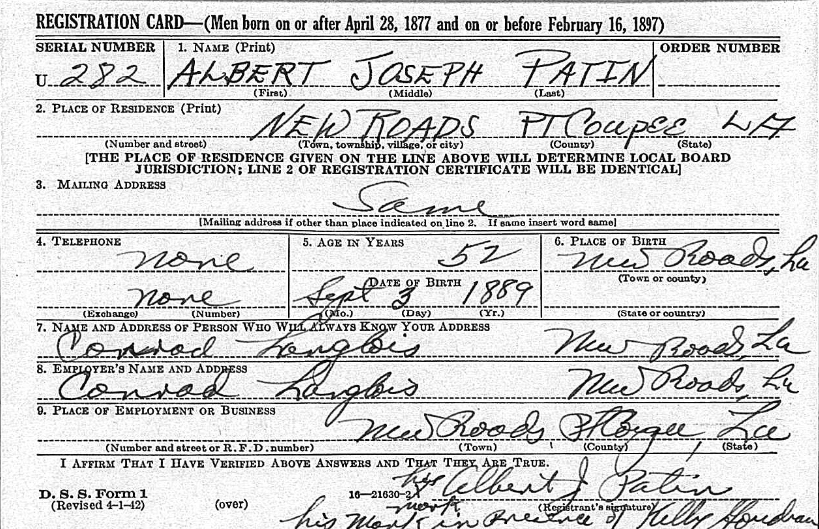 REGISTRATION CARD—(Men born on or after April 28, 1877 and on or before February 16, 1897)
SERIAL NUMBER 1. NAME (Print) ORDER NUMBER
U 282 ALBERT JOSEPH PATIN
(First) (Middle) (Last)
2. PLACE OF RESIDENCE (Print)
NEW ROADS PT COUPEE LA
(Number and street) (Town, township, village, or city) (County) (State)
[THE PLACE OF RESIDENCE GIVEN ON THE LINE ABOVE WILL DETERMINE LOCAL BOARD
JURISDICTION; LINE 2 OF REGISTRATION CERTIFICATE WILL BE IDENTICAL]
3. MAILING ADDRESS
Same
[Mailing address if other than place indicated on line 2. If same insert word same]
4. TELEPHONE 5. AGE IN YEARS 6. PLACE OF BIRTH
none 52 New Roads, La
DATE OF BIRTH (Town or county)
none Sept 3 1889
(Exchange) (Number) (Mo.) (Day) (Yr.) (State or country)
7. NAME AND ADDRESS OF PERSON WHO WILL ALWAYS KNOW YOUR ADDRESS
Conrad Langlois New Roads, La
8. EMPLOYER'S NAME AND ADDRESS
Conrad Langlois New Roads, La
9. PLACE OF EMPLOYMENT OR BUSINESS
New Roads La
(Number and street or R. F. D. number) (Town) (County) (State)
I AFFIRM THAT I HAVE VERIFIED ABOVE ANSWERS AND THAT THEY ARE TRUE.
his Albert J Patin
D. S. S. Form 1 16—21630-2 mark (Registrant's signature)
(Revised 4-1-42) (over)
his mark in of Kelly